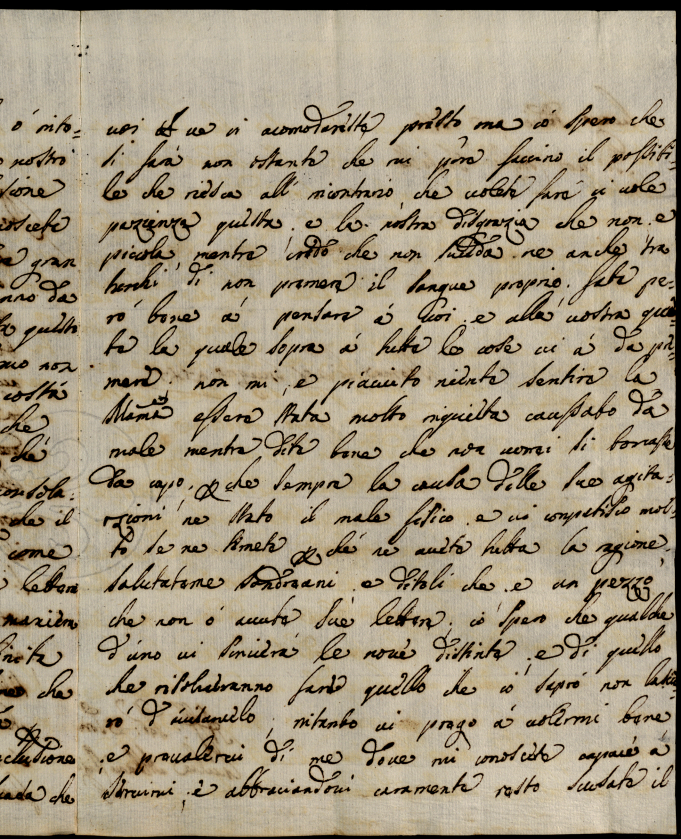 ó rito=
nostri
sione
gran
nno da
questi
mo non
costá
che
ché
consola=
che il
come
lettere
maniera
che
clusione
che
voi ve vi acomodereste presto ma ió spero che
si fará non ostante che mi pare faccino il possibi=
le che riesca all' incontrario che volete fare ci vole
pazienza questa e la nostra disgrazia che non e
piccola, mentre credo che non succeda ne anche tra
turchi, di non premere il sangue proprio. fate pe=
ró bene á pensare á voi e alla vostra quie
te la quale sopra á tutte le cose vi á da pre
mere. non mi e piaciuto niente sentire la
Mamá essere stata molto inquieta caussato da
male mentre dite bene che non vorrei si tornasse
da capo, che sempre la causa delle sue agita=
zioni ne stato il male fisico e vi conpatisco mol=
to se ne temete ché ne avete tutta la ragione.
salutateme e diteli che e un pezzo
che non ó avute sue lettere, ió spero che qualche
d'uno vi scriverá le nove distinte, e di quello
che risolveranno fare quello che ió sapró non lascie
ró d'avisarvelo, intanto vi prego á volermi bene
e prevalervi di me dove mi conoscete capace a
servirvi, e abbraciandovi caramente resto scusate il